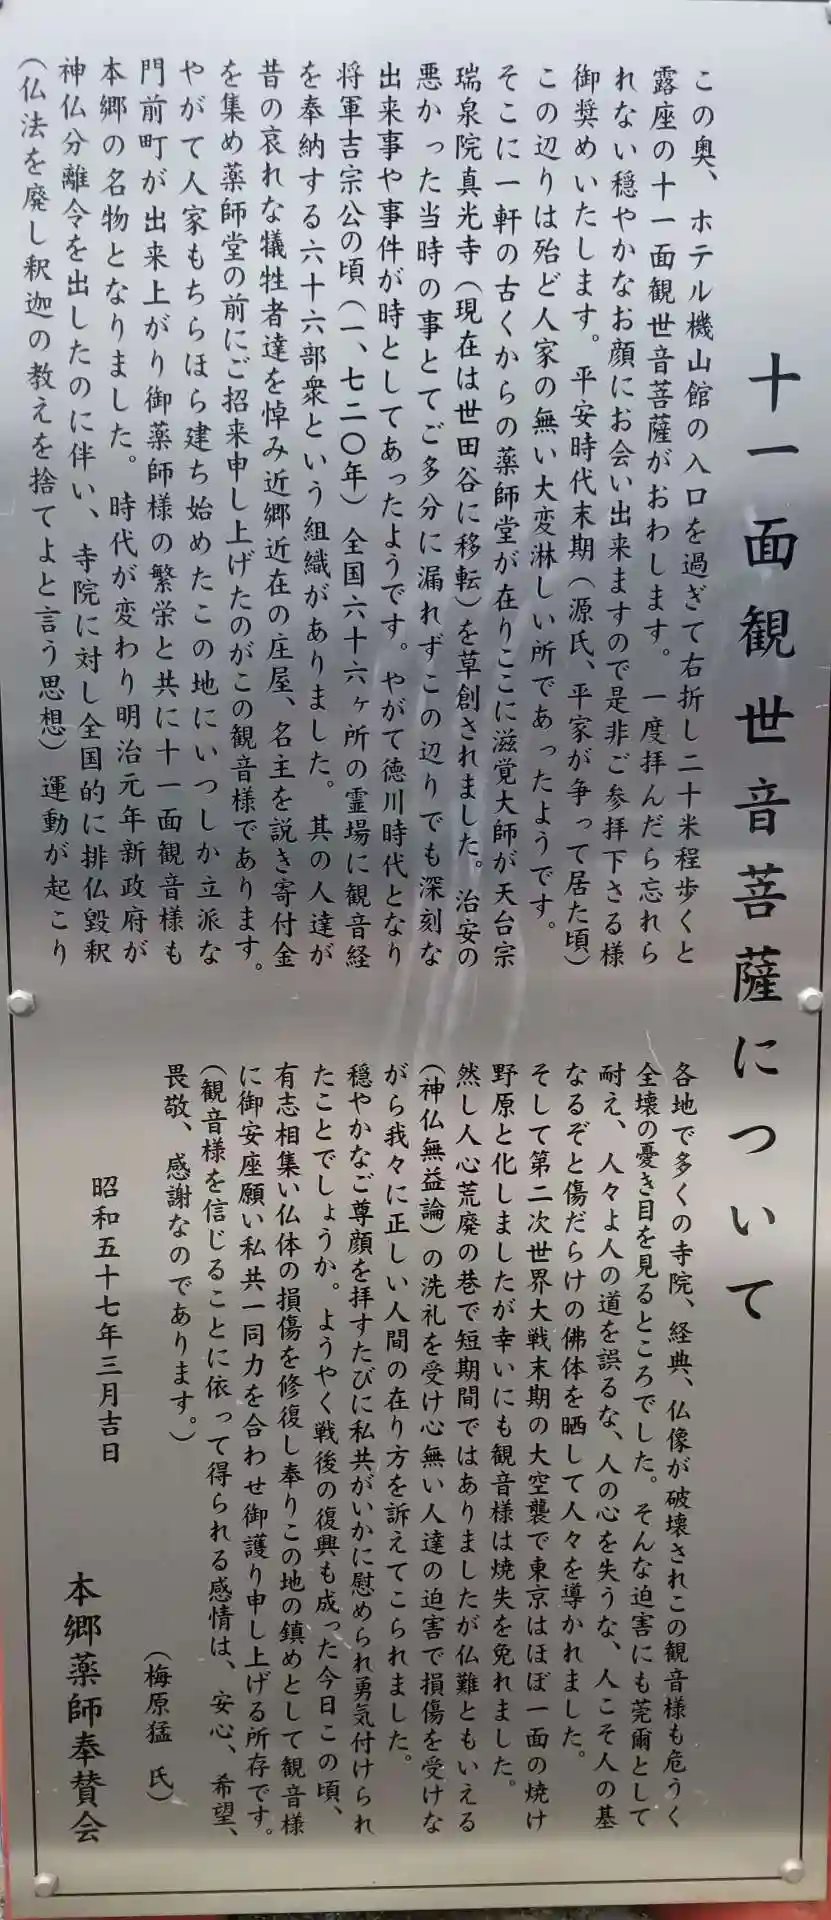 十一面観世音菩薩について
この奥、ホテル機山館の入口を過ぎて右折し二十米程歩くと
露座の十一面観世音菩薩がおわします。一度拝んだら忘れら
れない穏やかなお顔にお会い出来ますので是非ご参拝下さる様
御奨めいたします。平安時代末期（源氏、平家が争って居た頃）
この辺りは殆ど人家の無い大変淋しい所であったようです。
そこに一軒の古くからの薬師堂が在りここに滋覚大師が天台宗
瑞泉院真光寺（現在は世田谷に移転）を草創されました。治安の
悪かった当時の事とてご多分に漏れずこの辺りでも深刻な
出来事や事件が時としてあったようです。やがて徳川時代となり
将軍吉宗公の頃（一、七二〇年）全国六十六ヶ所の霊場に観音経
を奉納する六十六部衆という組織がありました。其の人達が
昔の哀れな犠牲者達を悼み近郷近在の庄屋、名主を説き寄付金
を集め薬師堂の前にご招来申し上げたのがこの観音様であります。
やがて人家もちらほら建ち始めたこの地にいつしか立派な
門前町が出来上がり御薬師様の繁栄と共に十一面観音様も
本郷の名物となりました。時代が変わり明治元年新政府が
神仏分離令を出したのに伴い、寺院に対し全国的に排仏毀釈
（仏法を廃し釈迦の教えを捨てよと言う思想）運動が起こり
各地で多くの寺院、経典、仏像が破壊されこの観音様も危うく
全壊の憂き目を見るところでした。そんな迫害にも莞爾として
耐え、人々よ人の道を誤るな、人の心を失うな、人こそ人の基
なるぞと傷だらけの佛体を晒して人々を導かれました。
そして第二次世界大戦末期の大空襲で東京はほぼ一面の焼け
野原と化しましたが幸いにも観音様は焼失を免れました。
然し人心荒廃の巷で短期間ではありましたが仏難ともいえる
（神仏無益論）の洗礼を受け心無い人達の迫害で損傷を受けな
がら我々に正しい人間の在り方を訴えてこられました。
穏やかなご尊顔を拝すたびに私共がいかに慰められ勇気付けられ
たことでしょうか。ようやく戦後の復興も成った今日この頃、
有志相集い仏体の損傷を修復し奉りこの地の鎮めとして観音様
に御安座願い私共一同力を合わせ御護り申し上げる所存です。
（観音様を信じることに依って得られる感情は、安心、希望、
畏敬、感謝なのであります。）
（梅原猛 氏）
昭和五十七年三月吉日
本郷薬師奉賛会